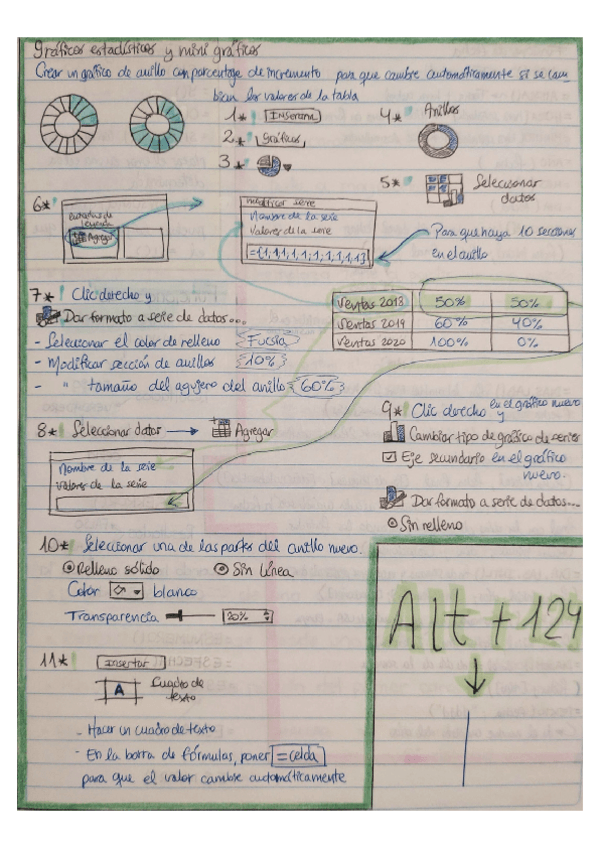 Gráficos estadísticos y mini gráficos
Crear un gráfico de anillo con porcentaje de incremento para que cambie automáticamente si se cam-
bian los valores de la tabla
1* Insertar
2* Gráficos
3*
4* Anillos
5* Seleccionar
datos
6*
Entradas de
leyenda
Agregar
modificar serie
Nombre de la serie
Valores de la serie
={1,1,1,1,1,1,1,1,1,1}
Para que haya 10 secciones
en el anillo
7* Clic derecho y
Dar formato a serie de datos...
- Seleccionar el color de relleno Fucsia
- Modificar sección de anillos 10%
- " tamaño del agujero del anillo 60%
Ventas 2018 50% 50%
Ventas 2019 60% 40%
Ventas 2020 100% 0%
8* Seleccionar datos → Agregar
Nombre de la serie
Valores de la serie
9* Clic derecho en el gráfico nuevo y
Cambiar tipo de gráfico de series
Eje secundario en el gráfico
nuevo.
Dar formato a serie de datos...
Sin relleno
10* Seleccionar una de las partes del anillo nuevo.
Relleno sólido Sin línea
Color blanco
Transparencia 20%
11* Insertar
A Cuadro de
texto
- Hacer un cuadro de texto
- En la barra de fórmulas, poner =celda
para que el valor cambie automáticamente
Alt + 124
↓
|